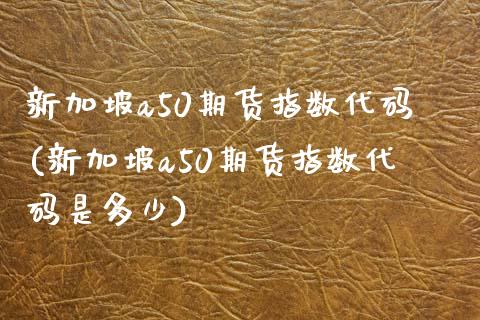 新加坡a50期货指数代码
(新加坡a50期货指数代
码是多少)